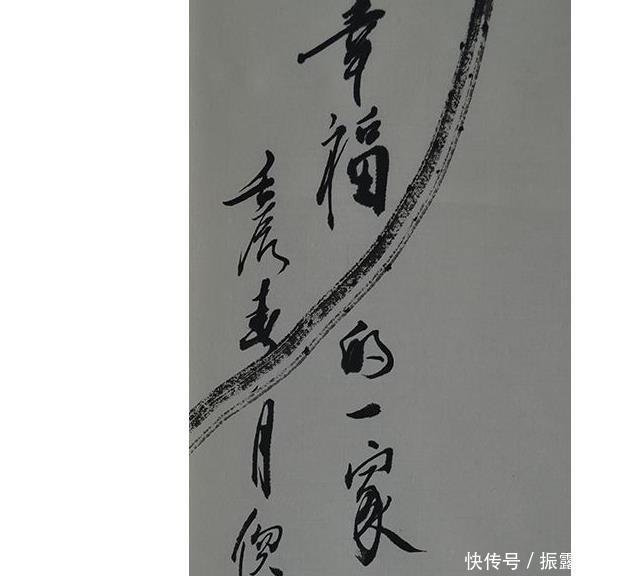 幸福的一家
壬辰春月
快传号 / 振露